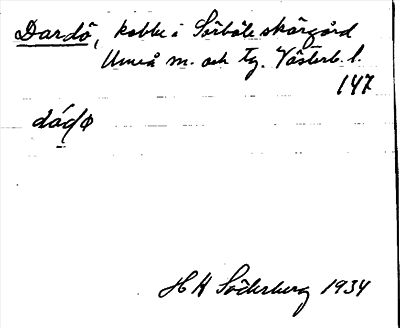 Dardö, kobbe i Sörböle skärgård
Umeå m. och tg. Västerb. l.
147
dáḍø
H A Söderberg 1934